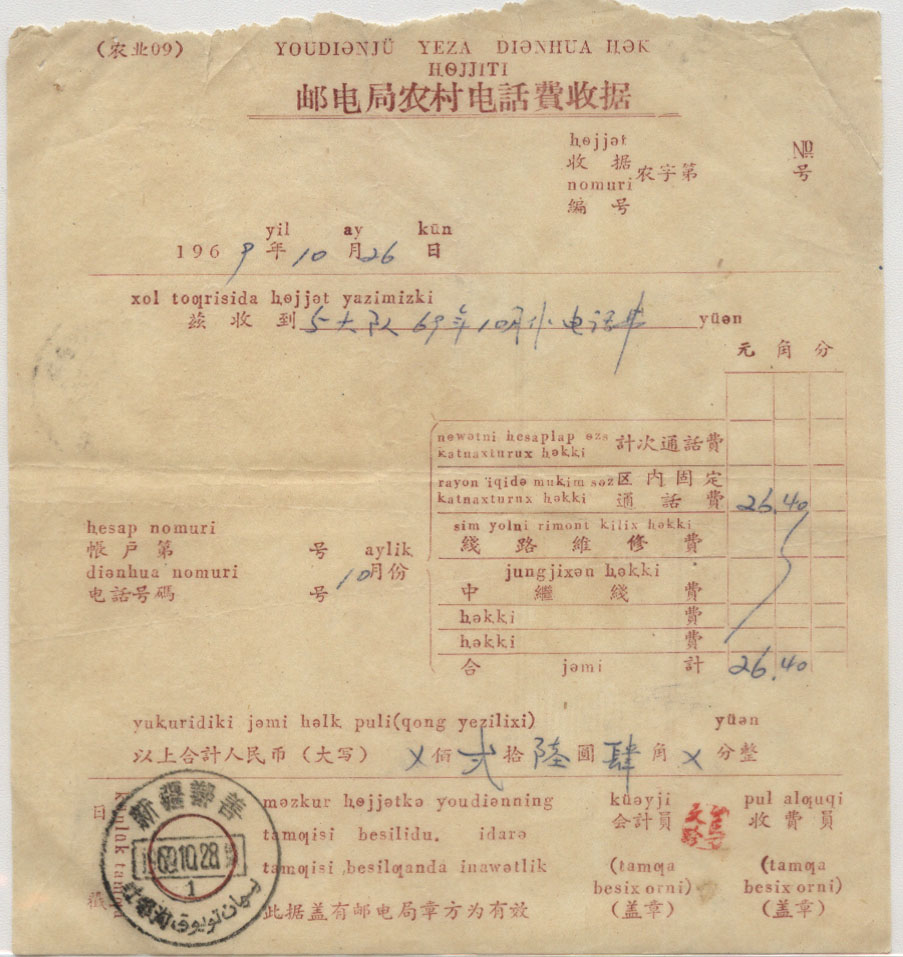 (农业09)
YOUDIƏNJÜ YEZA DIƏNHUA ⱨƏK
ⱨɵJJITI
邮电局农村电話費收据
ⱨɵjjət
收据 农字第 № 号
nomuri
編号
yil ay kün
1969年10月26日
xol toƣrisida ⱨɵjjət yazimizki
茲收到 5大队69年10月 电话费 yüən
元 角 分
nɵwətni ⱨesaplap sɵz
katnaxturux ⱨəkki
計次通話費
rayon iqidə mukim sɵz
katnaxturux ⱨəkki
区内固定
通話費 26.40
sim yolni rimont kilix ⱨəkki
綫路維修費
jungjixən ⱨəkki
中繼綫費
ⱨəkki 費
ⱨəkki 費
合 jəmi 計 26.40
ⱨesap nomuri
帳戶第 号
diənhua nomuri
电話号碼 号
aylik
10月份
yukuridiki jəmi həlk puli(qong yezilixi) yüən
以上合計人民币(大写) X佰弍拾陸圓肆角X分整
日
戳
məzkur ⱨɵjjətkə youdiənning
tamƣisi besilidu. idarə
tamƣisi besilƣanda inawətlik
此据盖有邮电局章方为有效
kuəyji
会計員
(tamƣa
besix orni)
(盖章)
pul alƣuqi
收費員
(tamƣa
besix orni)
(盖章)
新疆鄯善
1969.10.28
1